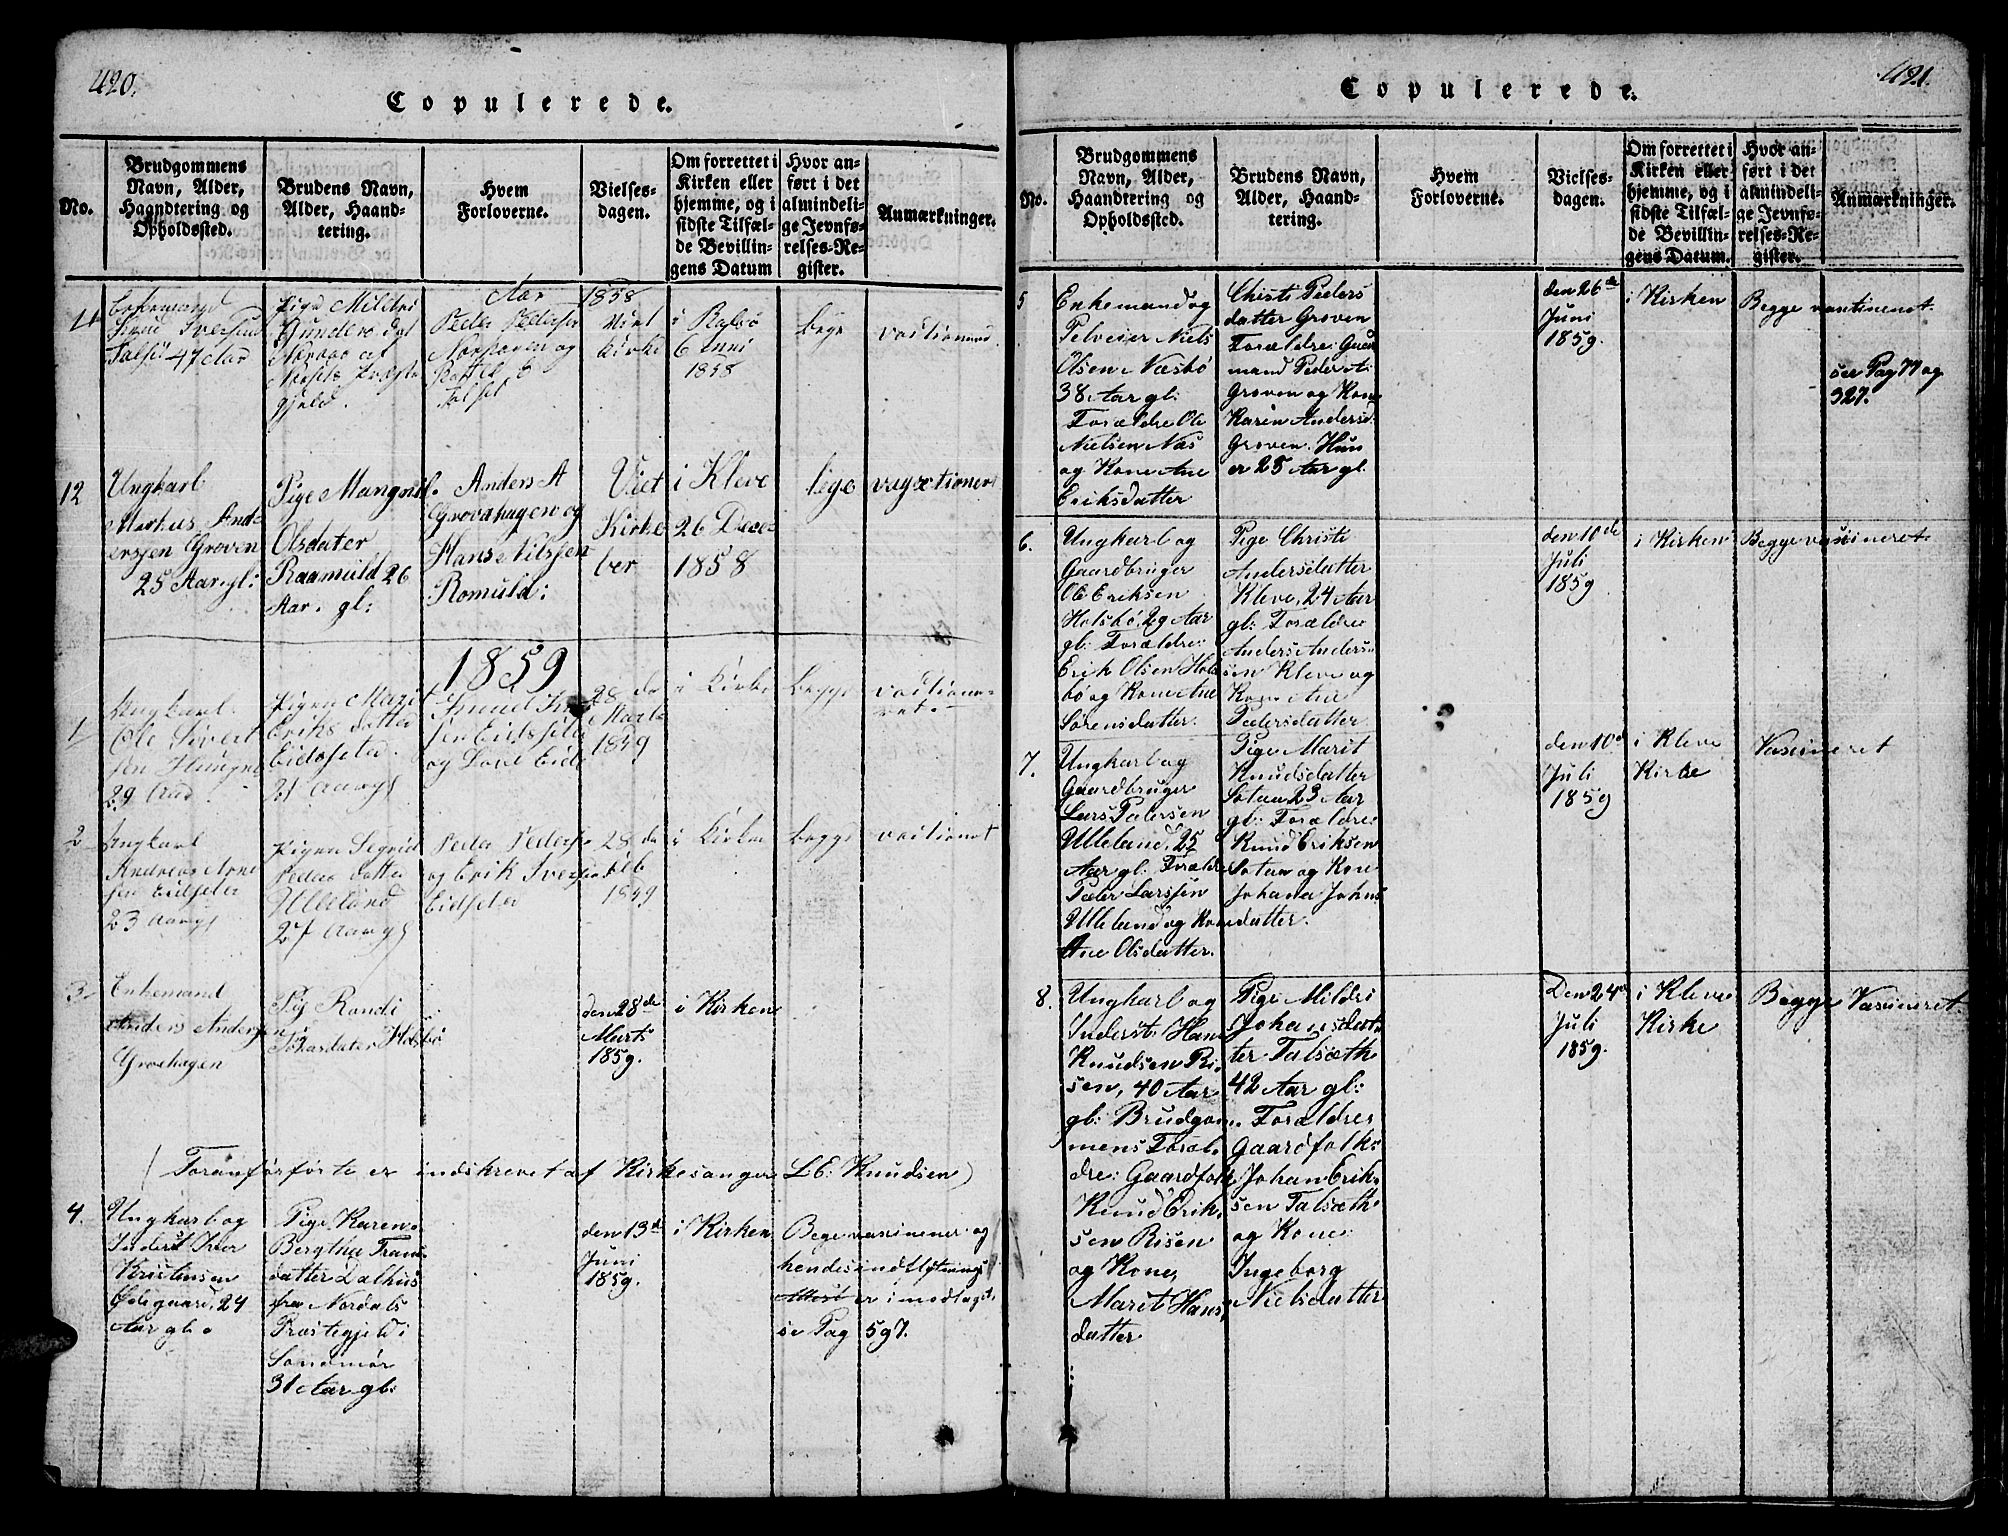 420.
Copulerede.
No.
Brudgommens
Navn, Alder,
Haandtering og
Opholdssted.
Brudens Navn,
Alder, Haand-
tering.
Hvem
Forloverne.
Vielses-
dagen.
Om forrettet i
Kirken eller
hjemme, og i
sidste Tilfæl-
de Bevillin-
gens Datum
Hvor an-
ført i det
almindeli-
ge Jevnfø-
relses-Re-
gister.
Anmærkninger.
Aar 1858
Enkemand
Knud Iversen
47 Aar
Pige Mildri
Gunders dat
gjeld.
Peder Pederser
og
Viet
Kirke
i
6 Juni
1858
bege
12
Ungkarl
Markus And-
ersen Groven
25 Aar gl:
Pige Mangnil
Olsdater
Raamuld 26
Aar. gl:
Anders A
Grovahagen og
Hans Nilsjen
Romuld:
Viet
Kirke
ber
i Kleve
26 Decem
1858
bege
1859
1
Ungkarl
Ole Sivert
sen
29 Aar
Pigen Marit
Eriks datter
Eidsseter
21 Aar gl
Knud
sen Eidsseter
og
28 de
Marts
1849
i Kirke
begge
2
Ungkarl
Andreas Arne
sen Eidseter
23 Aar gl
Pigen Segrid
Peders datter
Ulleland
27 Aar gl
Peder Peders
og Erik Iversen
Eidseter
28 de
Feb
1849
i Kirke
begge
3
Enkemand
Anders Andersen
Grovhagen
Pig Randi
Johasdater Holsbø
den 28de
Marts
1859.
i Kirken
(Foranførførte er indskrevet af Kirkesanger L E: Knudsen)
4.
Ungkarl og
Inderst Iver
Kristensen
Ødegaard, 24
Aar gl.
Pige Karen
Bergtha Frans
datter Dalhus
fra Nordals
Præstegjeld i
Søndmør
31 Aar gl:
den 13de
Juni
1859.
i Kirken
Bege vaxinener og
hendes indflytnings
Attest er i modtaget.
se Pag 597.
421.
Copulerede.
No.
Brudgommens
Navn, Alder,
Haandtering og
Opholdssted.
Brudens Navn,
Alder, Haand-
tering.
Hvem
Forloverne.
Vielses-
dagen.
Om forrettet i
Kirken eller
hjemme, og i
sidste Tilfæl-
de Bevillin-
gens Datum.
Hvor an-
ført i det
almindeli-
ge Jevnfø-
relses-Re-
gister.
Anmærkninger.
5
Enkemand og
Pelveier Niels
Olsen Næsbø
38 Aar gl:
Forældre Ole
Nielsen Næs
og Kone Ane
Eriksdatter
Christi Peders
datter Groven
Forældre: Gaar
mand Peder A:
Groven og Kone
Karen Andersd.
Groven. Hun
er 25 Aar gl
den 26de
Juni
1859.
i Kirken
Begge vaxtineret.
see Pag 77 og
327.
6.
Ungkarl og
Gaardbruger
Ole Eriksen
Holsbø, 29 Aar
gl: Forældre:
Erik Olsen Hols
bø og Kone Ane
Sørensdatter.
Pige Christi
Andersdatter
Kleve, 24 Aar
gl: Forældre
Anders Anders-
sen Kleve og
Kone Ane
Pedersdatter
den 10de
Juli
1859
i Kirken
Begge vaxineret.
7.
Ungkarl og
Gaardbruger
Lars Pedersen
Ulleland, 25
Aar gl: Forældre
Peder Larssen
Ulleland og Kone
Ane Olsdatter.
Pige Marit
Knudsdatter
Sotan 23 Aar
gl: Forældre
Knud Eriksen
Sotan og Kone
Johana Johns
datter.
den 10de
Juli
1859
i Kleve
Kirke
Vasineret
8.
Ungkarl og
Inderst: Hans
Knudsen Ri-
sen, 40 Aar
gl: Brudgom-
mens Foræl-
dre: Gaardfolk
Knud Erik-
sen Risen
og Kone,
Marit Hans-
datter
Pige Mildri
Johansdat-
ter Talsæth
42 Aar gl:
Forældre
Gaardfolk:
Johan Erik-
sen Talsæth
og Kone
Ingeborg
Nielsdatter
Den 24de
Juli
1859.
i Kleve
Kirke
Begge Vasineret.